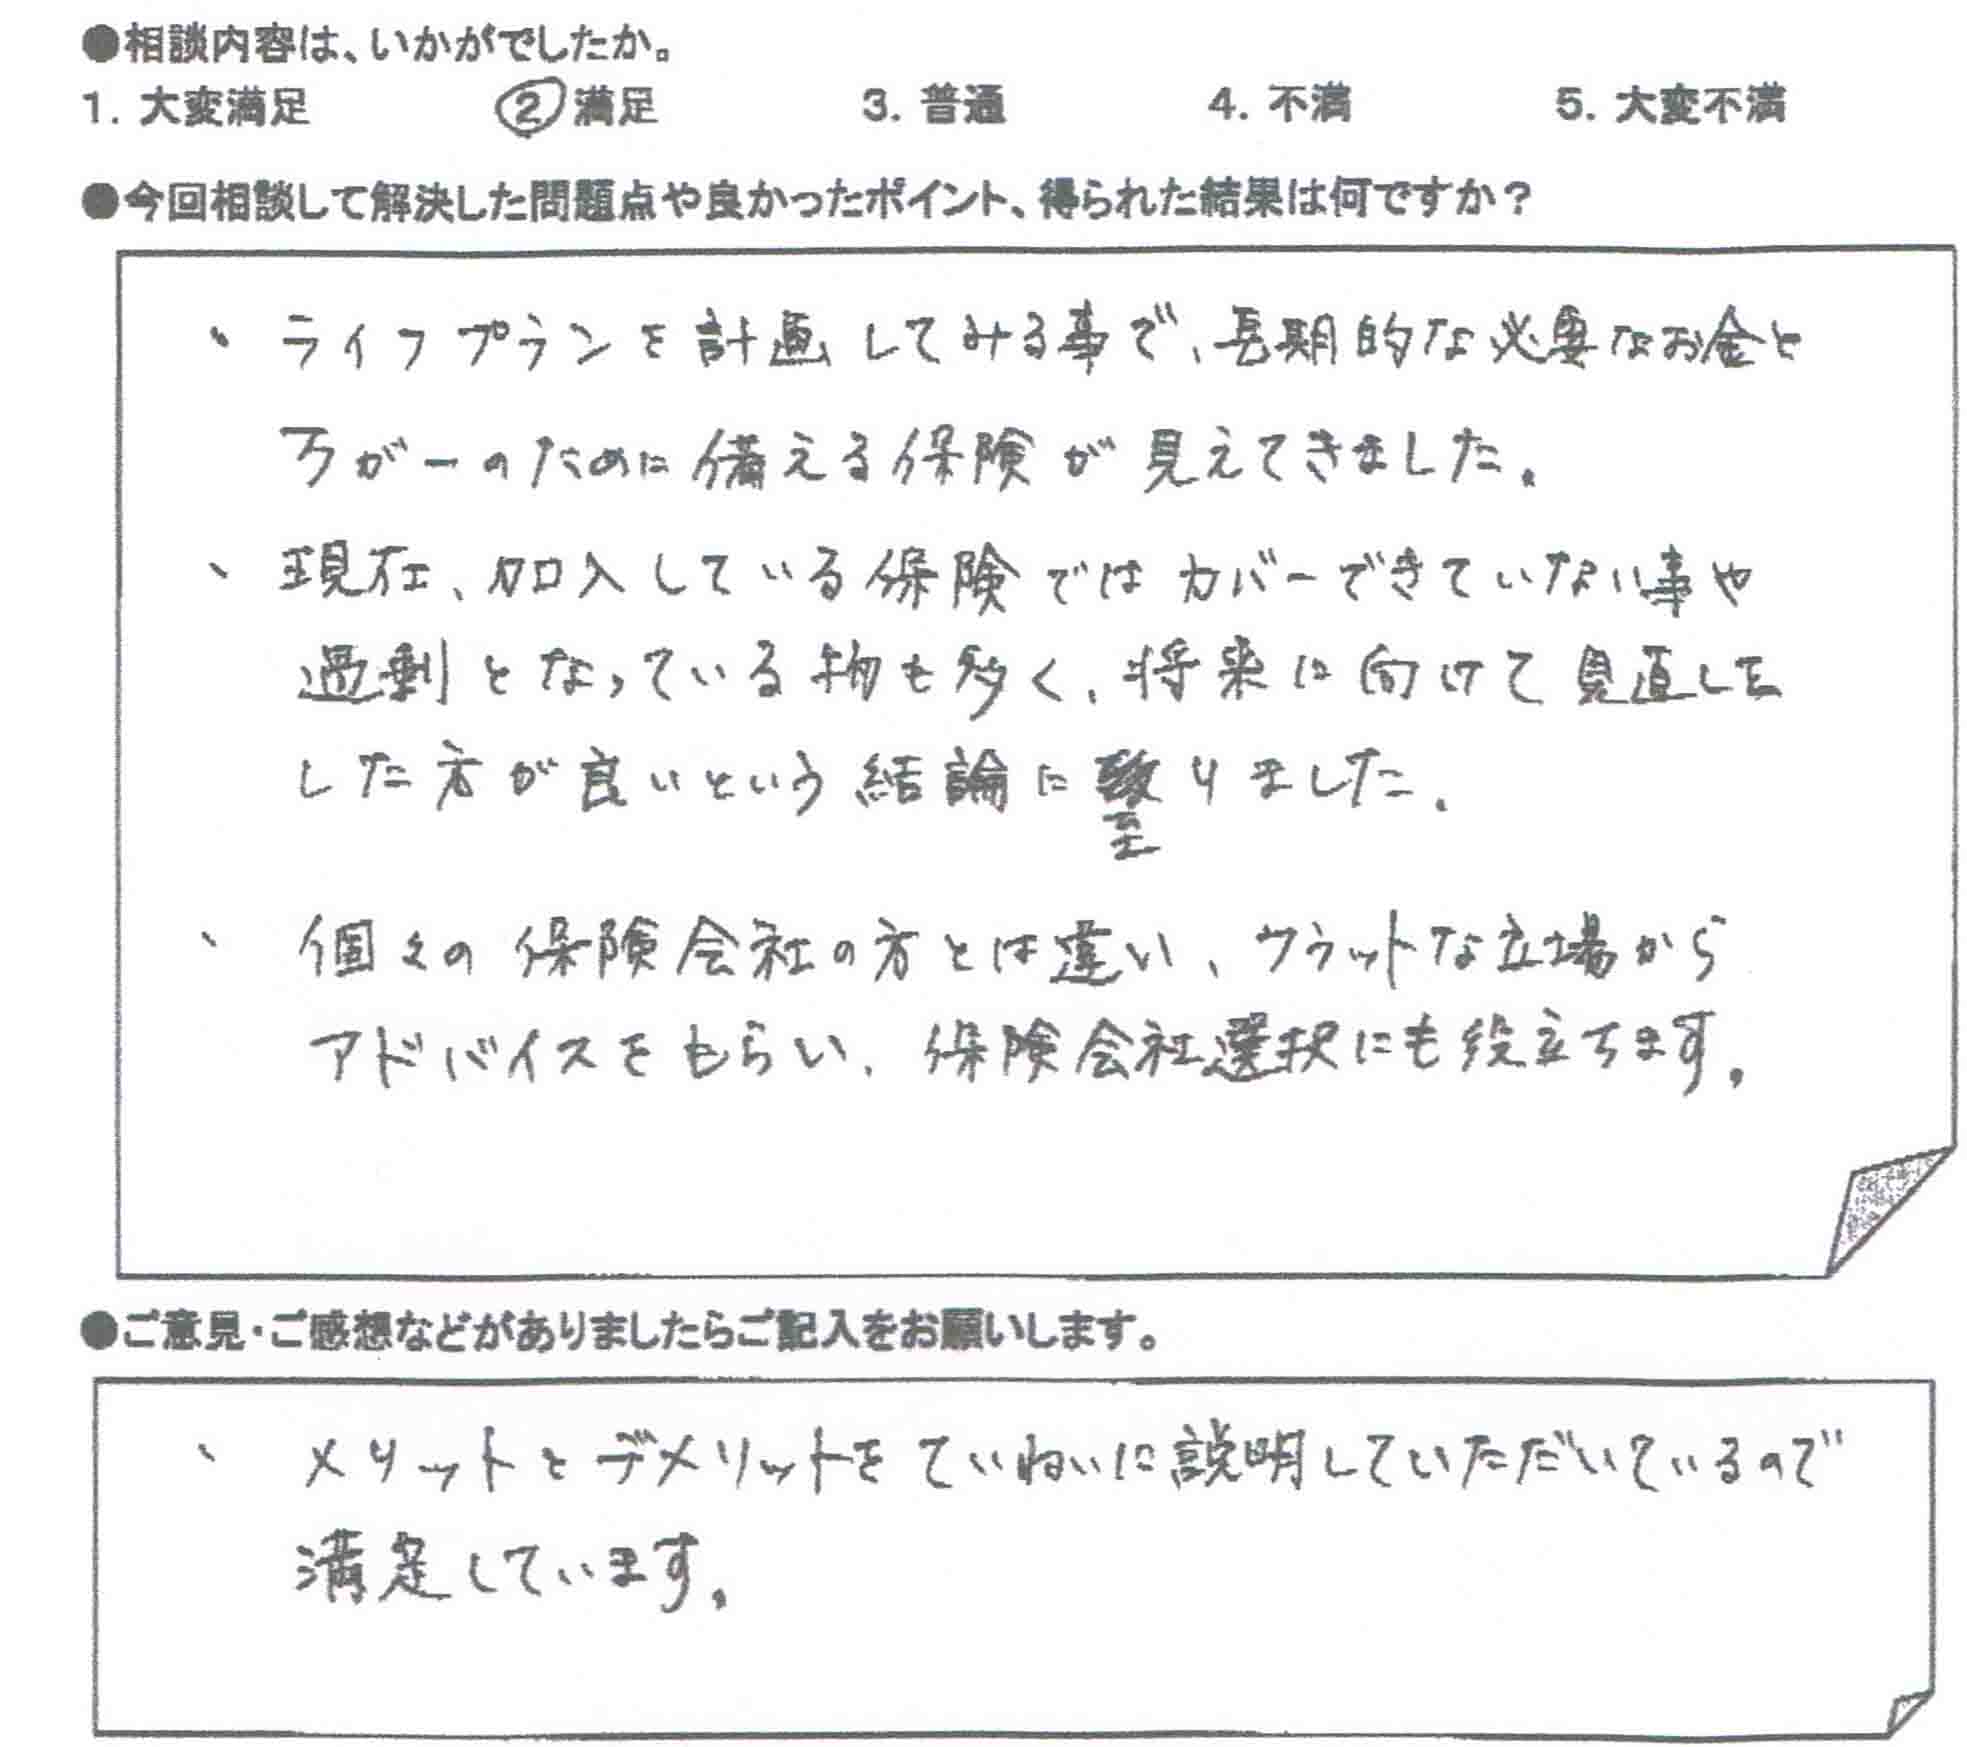 ●相談内容は、いかがでしたか。
1. 大変満足 ② 満足 3. 普通 4. 不満 5. 大変不満
●今回相談して解決した問題点や良かったポイント、得られた結果は何ですか？
、ライフプランを計画してみる事で、長期的な必要なお金と
万が一のために備える保険が見えてきました。
、現在、加入している保険ではカバーできていない事や
過剰となっている物も多く、将来に向けて見直しを
した方が良いという結論に りました。
至
、個々の保険会社の方とは違い、フラットな立場から
アドバイスをもらい、保険会社選択にも役立ちます。
●ご意見・ご感想などがありましたらご記入をお願いします。
、メリットとデメリットをていねいに説明していただいているので
満足しています。